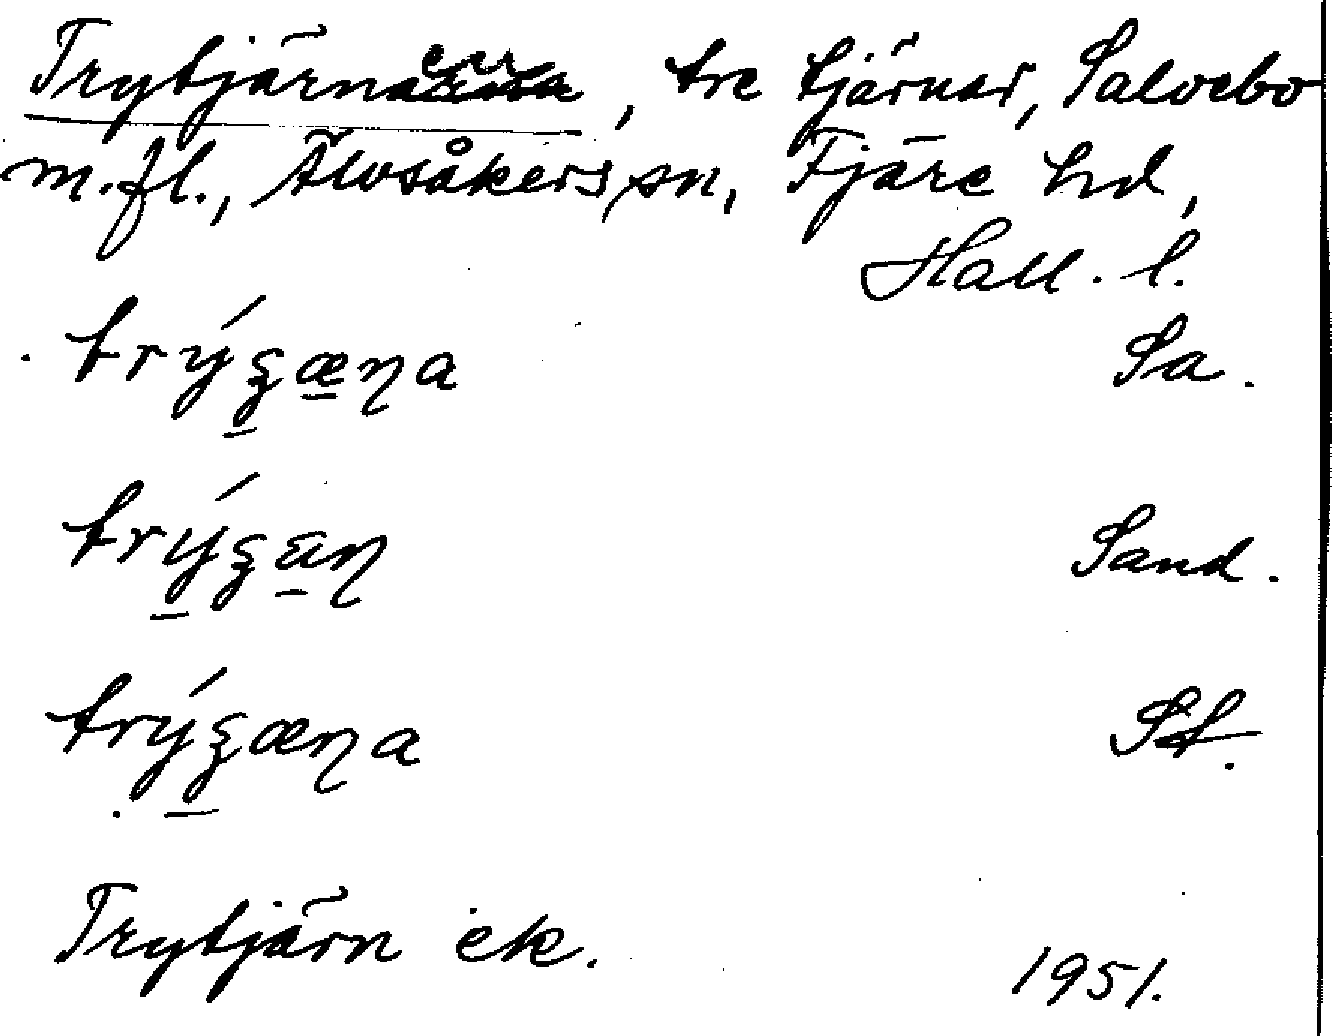 Trytjärnarna, tre tjärnar, Salvebo
m.fl., Älvsåkers sn, Fjäre hd,
Hall. l.
trýʒæɳa Sa.
trýʒæɳ Sand.
trýʒæɳa St.
Trytjärn ek.
1951.